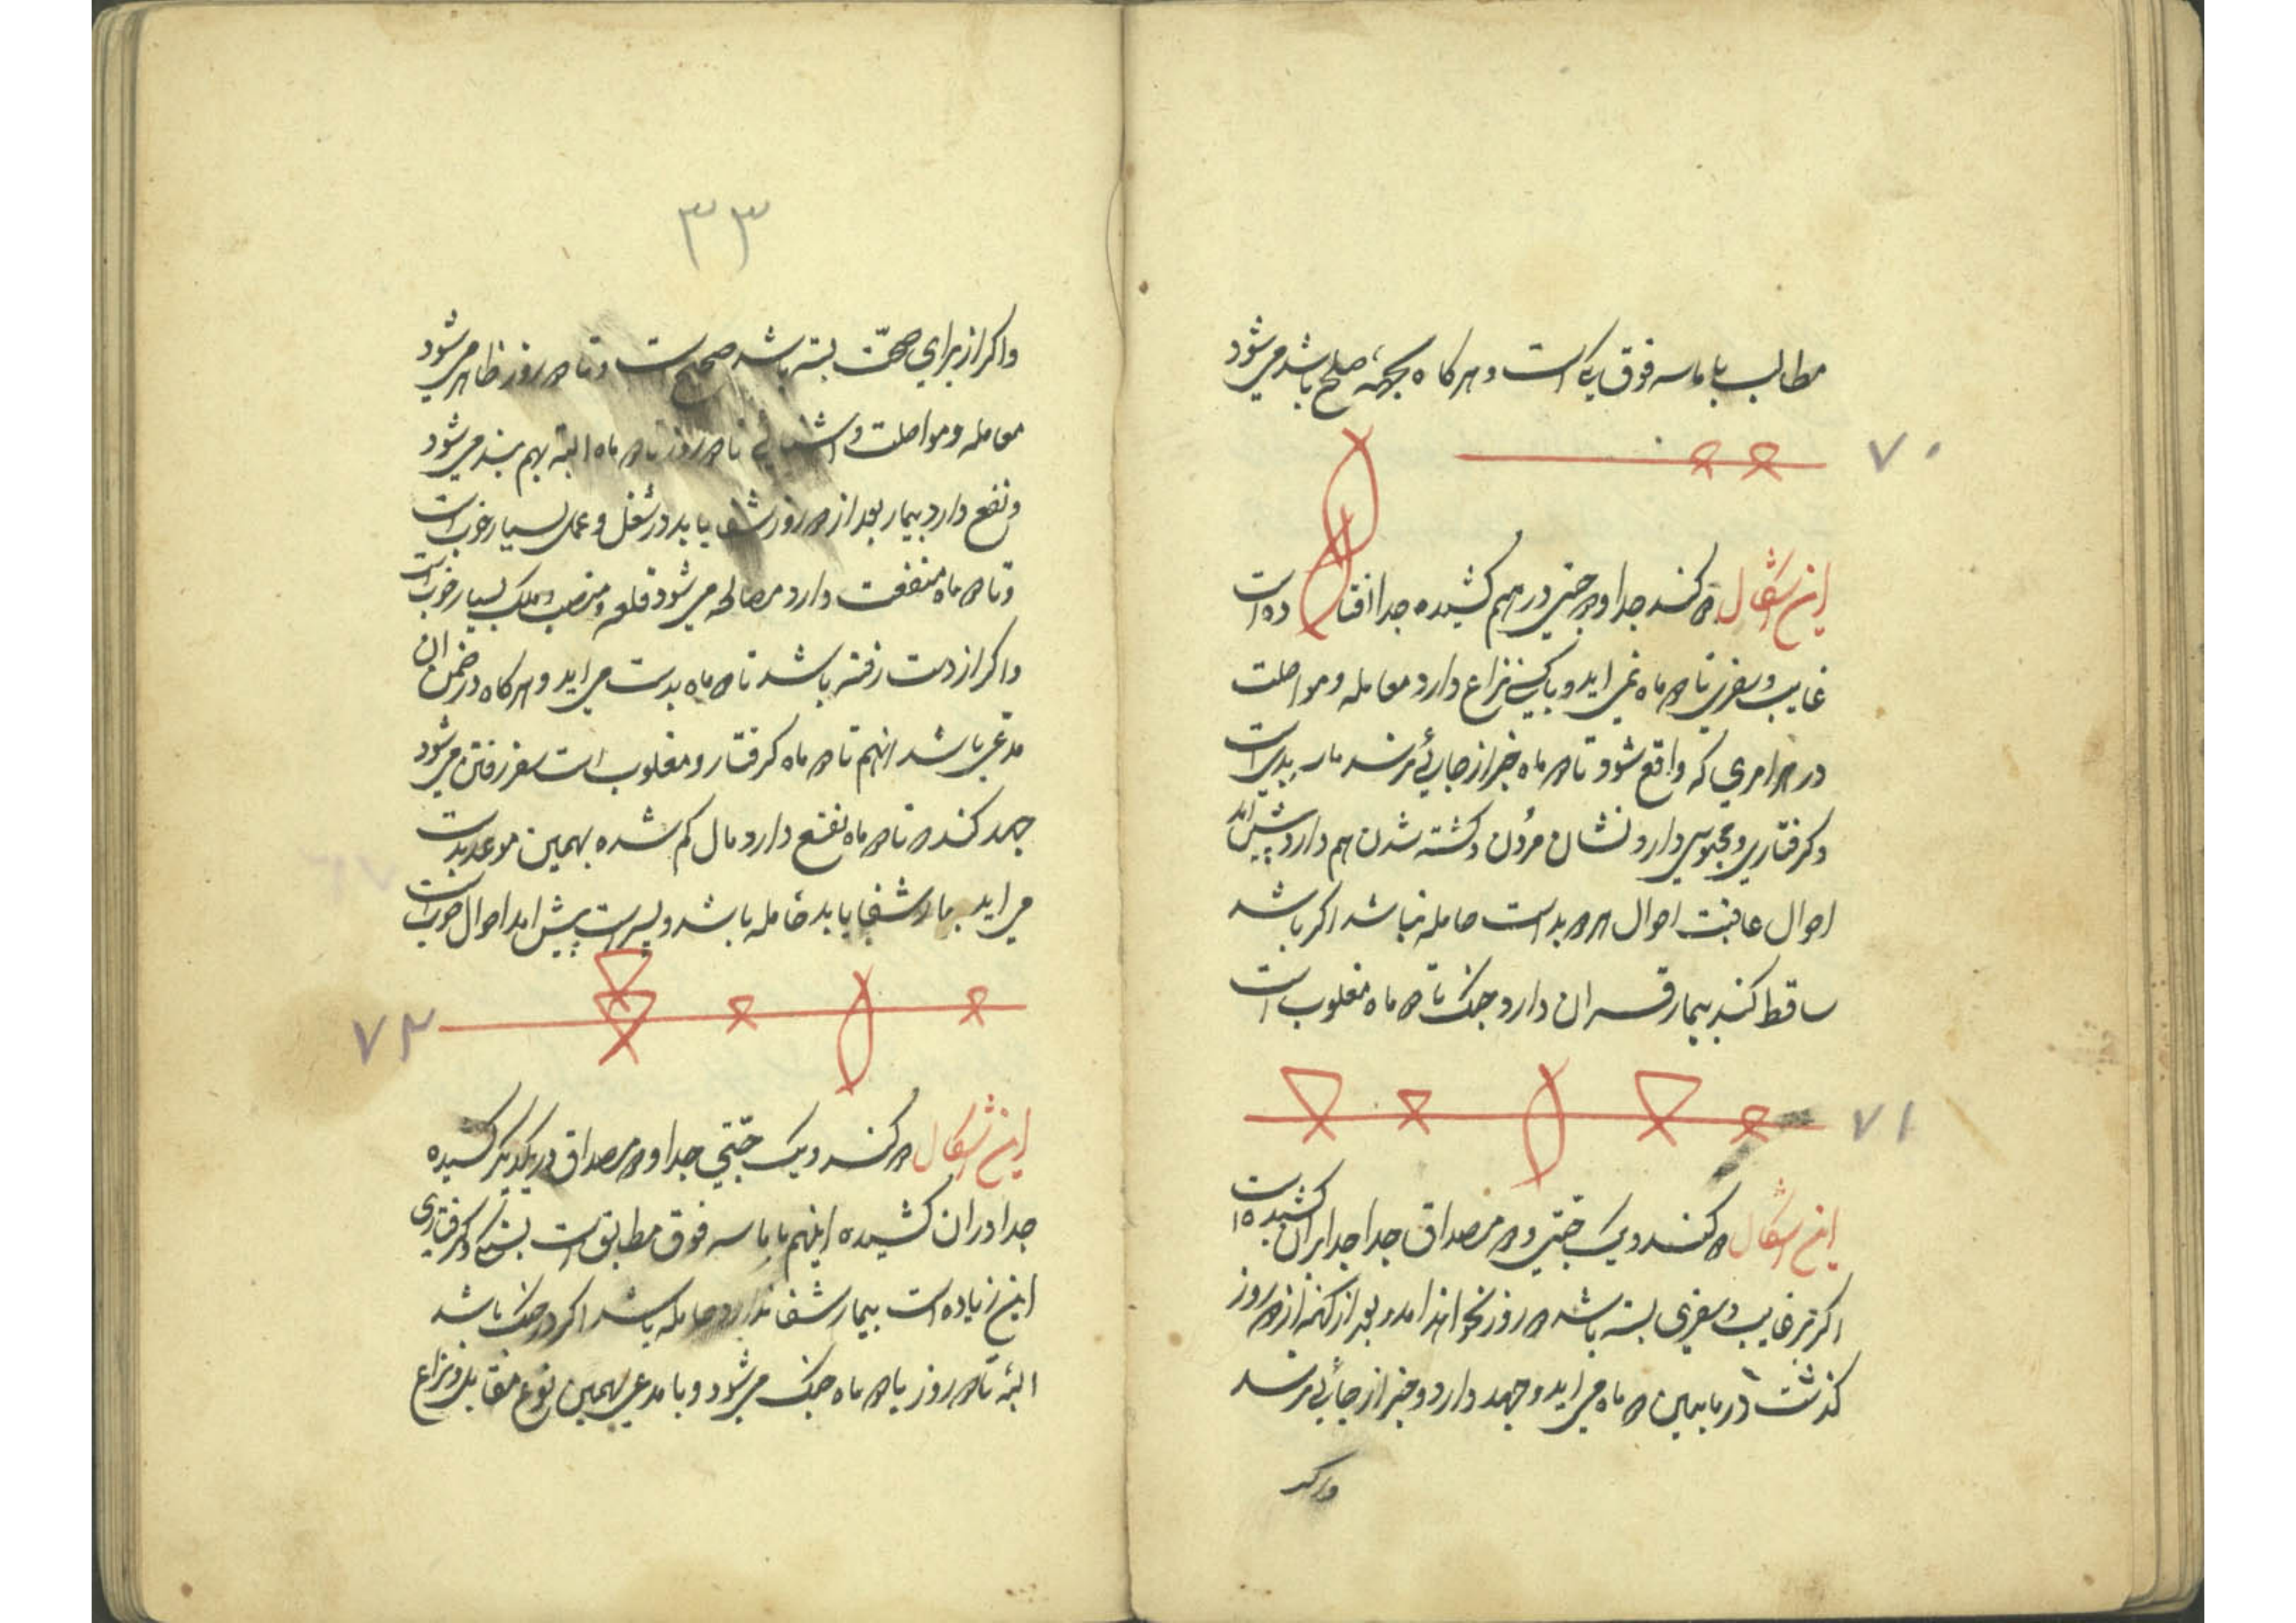 مطالب باماسه فوق یکی است و هرکاه بجهة صلح باشد می شود
۷۰
این اشکال کند جدا و جنتی در هم کشیده جدا افتاده است
غایب و سفری تا ماه نمی اید و با کسی نزاع دارد معامله و مواصلت
در هر امری که واقع شود تا ماه خبر از جائی رسد بد است
و کرفتاری و محبوسی دارد و نشان مردن و کشته شدن هم دارد پیش امد
احوال عاقبت احوال بد است حامله نباشد اکر باشد
ساقط کند بیمار دارد جنک تا ماه مغلوب است
۷۱
این اشکال کند و یک جنتی و مصداق جدا جدا بران کشیده است
اکر بر غایب و سفری بسته باشد روز نخواهد امد و بعد از انکه از روز
کذشت در مابین ماه می اید و جهد دارد و خبر از جائی رسد
واکر
۳۳
واکر از برای صحّت بسته باشد صحیح است و تا روز ظاهر می شود
معامله و مواصلت و اشنائی تا روز تا ماه البته بهم بند می شود
و نفع دارد بیمار بعد از روز شفا یابد در شغل و عمل بسیار خوب است
و تا ماه منفعت دارد مصالحه می شود قلعه و منصب و ملک بسیار خوب است
واکر از دست رفته باشد تا ماه بدست می اید و هرکاه در ضمن ان
مدعی باشد انهم تا ماه کرفتار و مغلوب است سفر رفتن می شود
جهد کند تا ماه نفع دارد مال کم شده بهمین موعد بدست
می اید بیمار شفا یابد حامله باشد و پسر است پیش امد احوال خوب است
۷۲
این اشکال کند و یک جنتی جدا و مصداق در یکدیکر کشیده
جدا در ان کشیده اینهم باماسه فوق مطابق است بستکی و کرفتاری
این زیاده است بیمار شفا ندارد حامله باشد اکر در جنک باشد
البته تا روز یا ماه جنک می شود و با مدعی بهمین نوع مقابل و نزاع